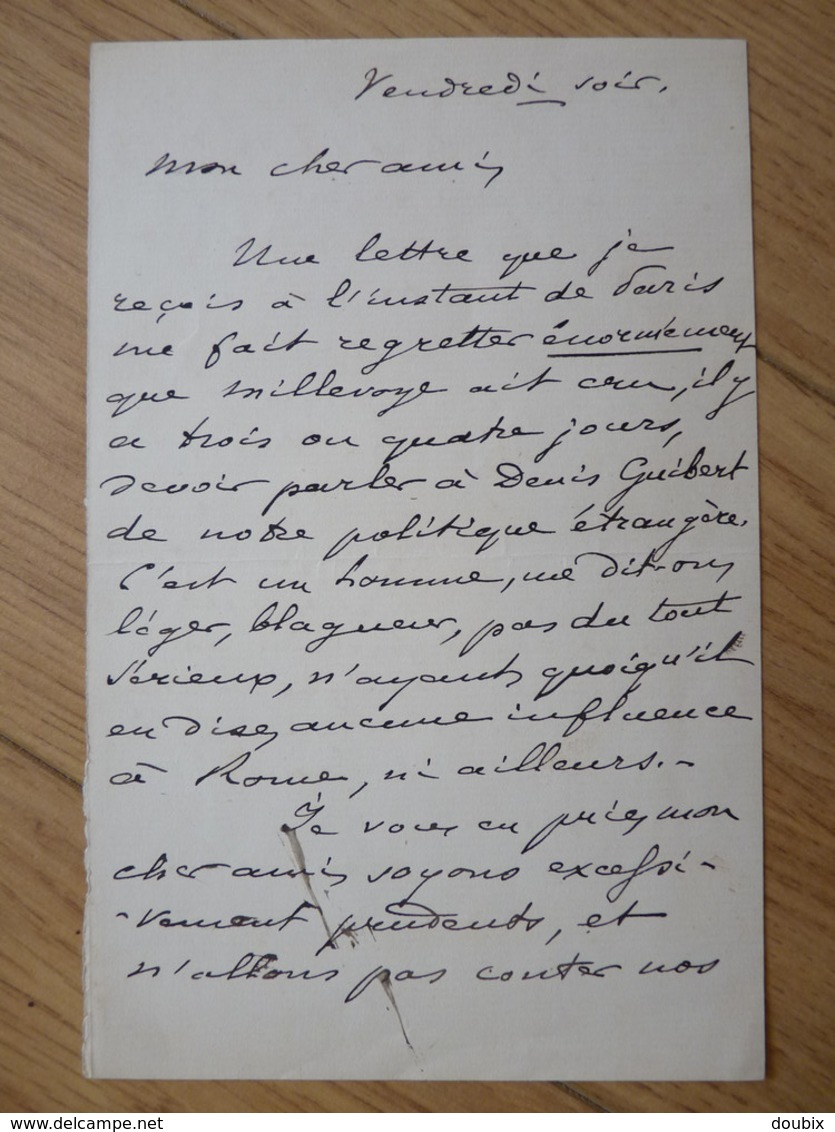 Vendredi soir.
Mon cher ami,
Une lettre que je
reçois à l'instant de Paris
me fait regretter énormément
que Millevoye ait cru, il y
a trois ou quatre jours,
devoir parler à Denis Guibert
de notre politique étrangère.
C'est un homme, me dit-on,
léger, blagueur, pas du tout
sérieux, n'ayant, quoiqu'il
en dise, aucune influence
à Rome, ni ailleurs.-
Je vous en prie, mon
cher ami, soyons excessi-
-vement prudents, et
n'allons pas conter nos
Delcampe.com
doubix